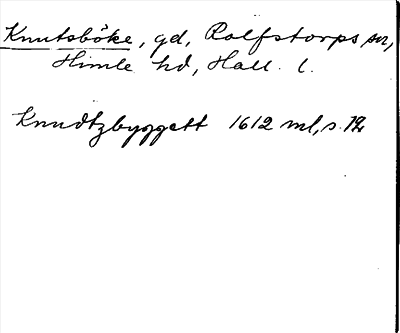 Knutsböke, gd, Rolfstorps sn,
Himle hd, Hall. l.
Knudtzbyggett 1612 ml, s.